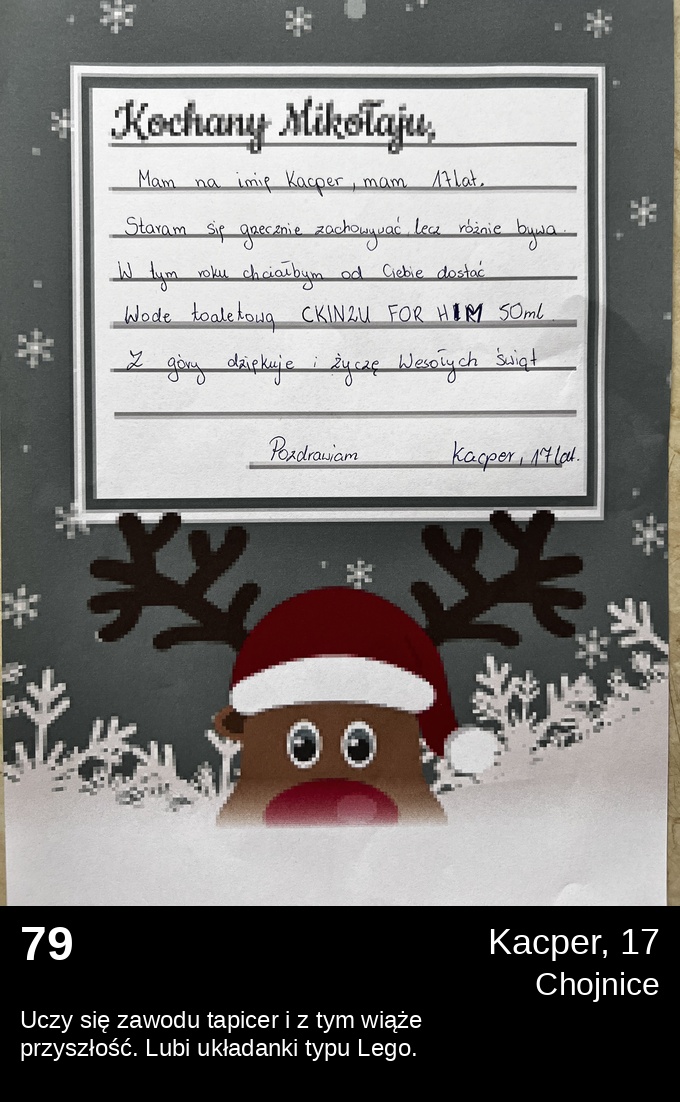 Kochany Mikołaju,
Mam na imię Kacper, mam 17 lat.
Staram się grzecznie zachowywać, lecz różnie bywa.
W tym roku chciałbym od Ciebie dostać
Wode toaletową CKIN2U FOR HIM 50ml
Z góry dziękuje i życzę Wesołych świąt
Pozdrawiam Kacper, 17 lat.
79
Kacper, 17
Chojnice
Uczy się zawodu tapicer i z tym wiąże
przyszłość. Lubi układanki typu Lego.